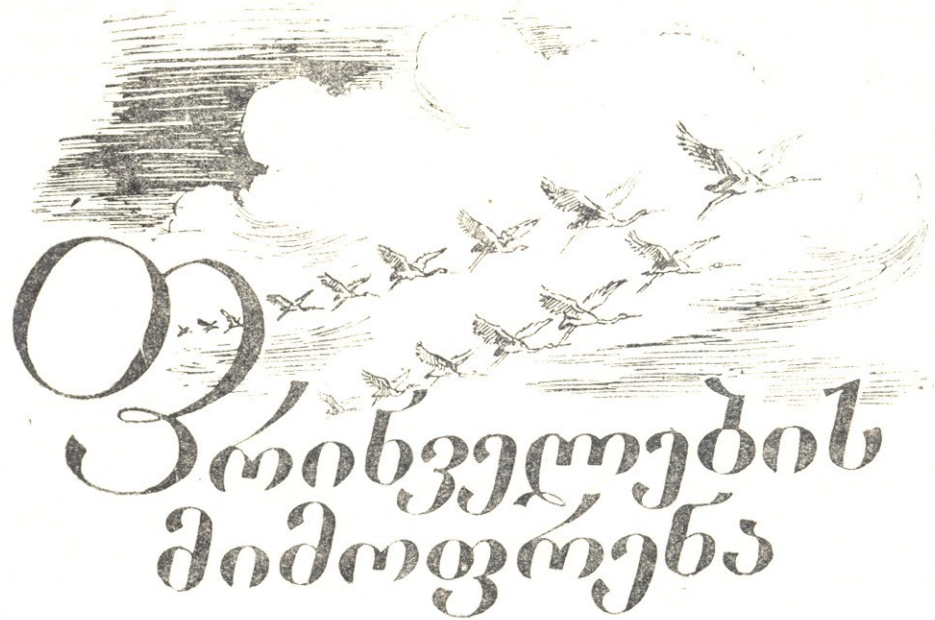 ფრინველების
მიმოფრენა